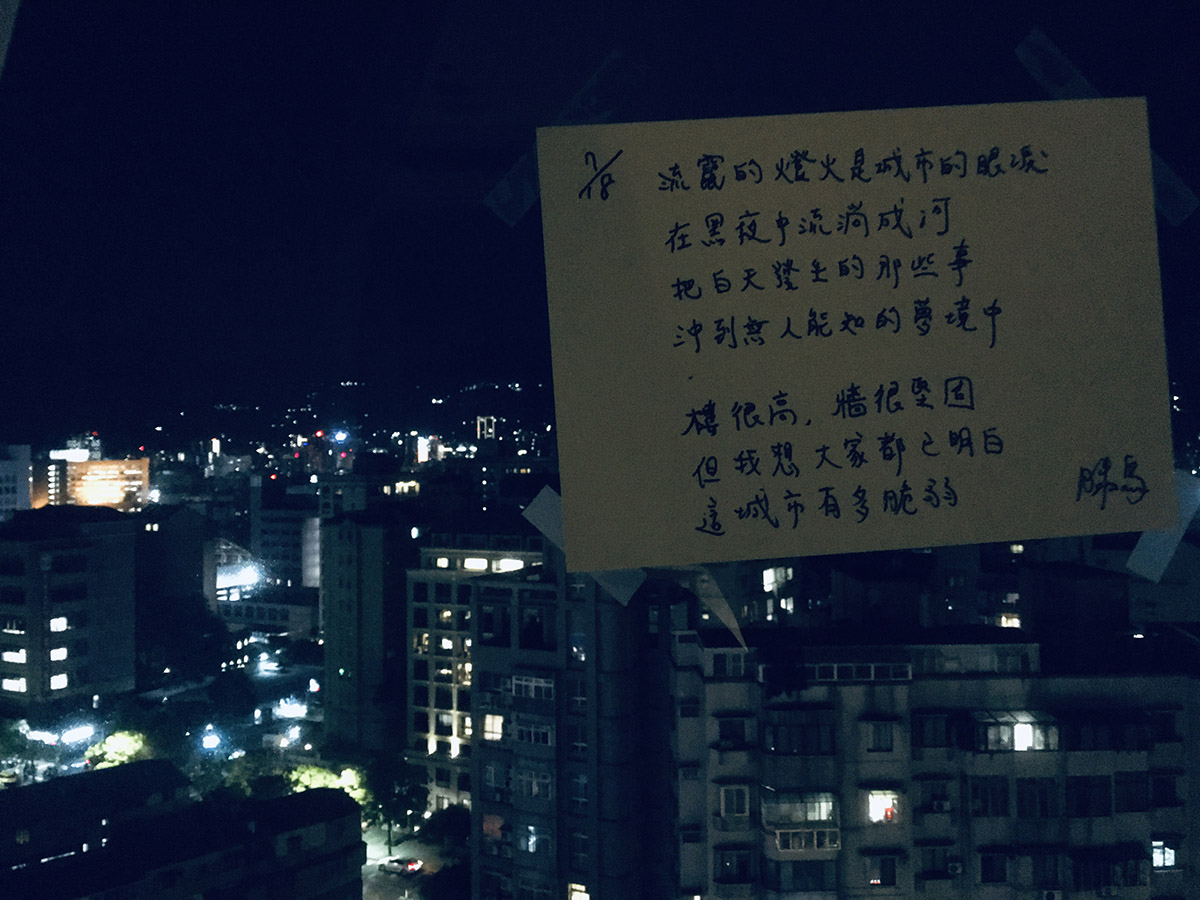 7/18
流竄的燈火是城市的眼淚
在黑夜中流淌成河
把白天發生的那些事
沖到無人能知的夢境中
樓很高，牆很堅固
但我想大家都已明白
這城市有多脆弱